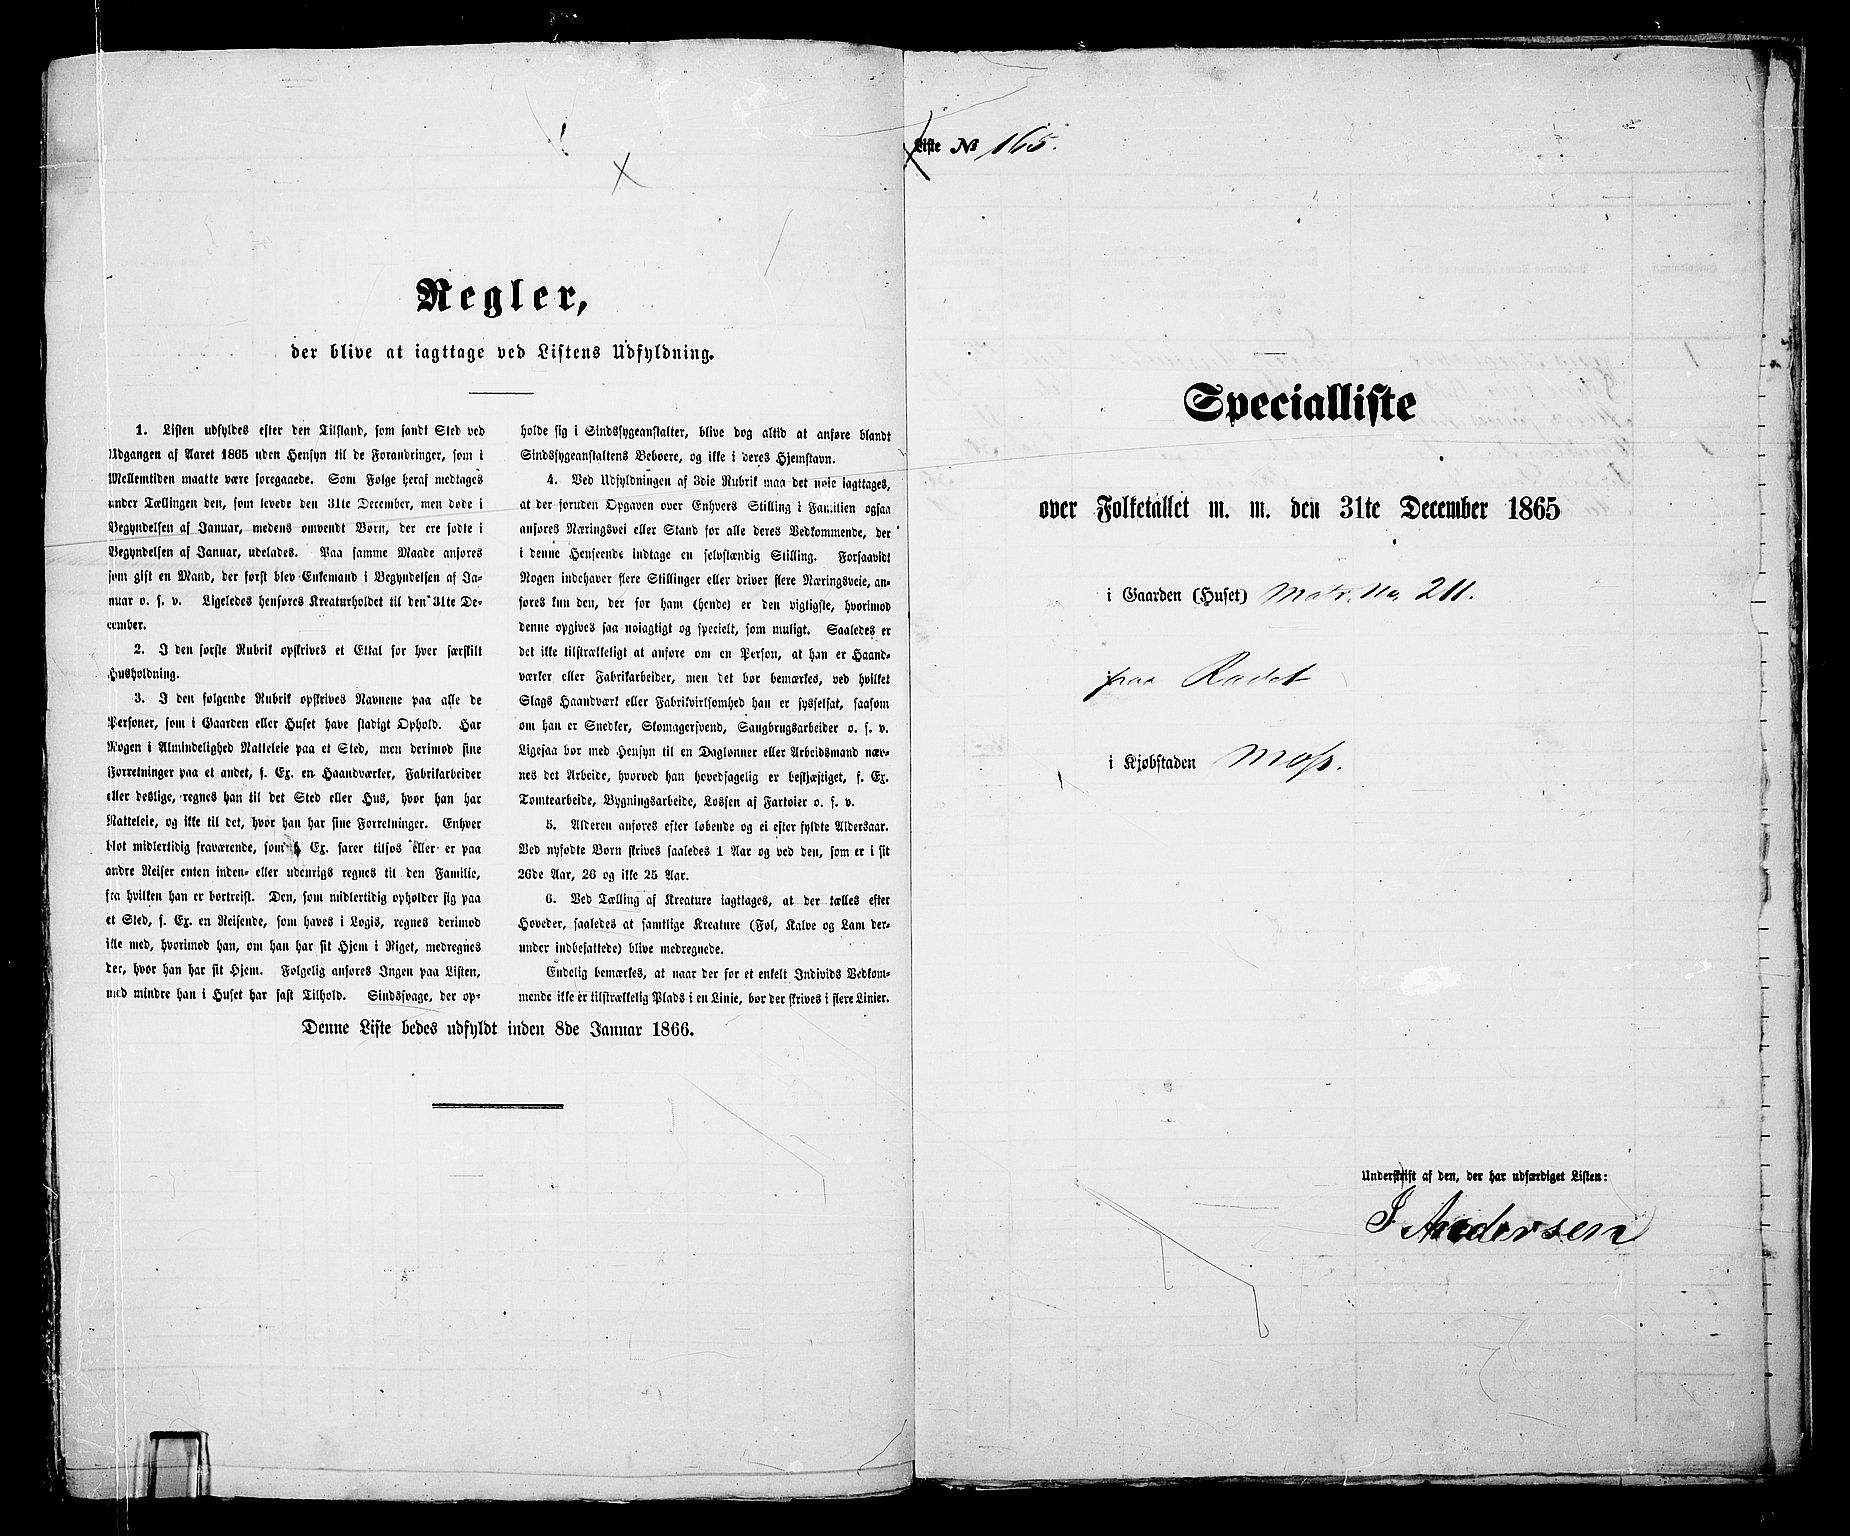 Regler,
der blive at iagttage ved Listens Udfyldning.
1. Listen udfyldes efter den Tilstand, som fandt Sted ved
Udgangen af Aaret 1865 uden Hensyn til de Forandringer, som i
Mellemtiden maatte være foregaaede. Som Følge heraf medtages
under Tællingen den, som levede den 31te December, men døde i
Begyndelsen af Januar, medens omvendt Børn, der ere fødte i
Begyndelsen af Januar, udelades. Paa samme Maade anføres
som gift en Mand, der først blev Enkemand i Begyndelsen af Ja-
nuar o. s. v. Ligeledes henføres Kreaturholdet til den 31te De-
cember.
2. I den første Rubrik opskrives et Ettal for hver særskilt
Husholdning.
3. I den følgende Rubrik opskrives Navnene paa alle de
Personer, som i Gaarden eller Huset have stadigt Ophold. Har
Nogen i Almindelighed Natteleie paa et Sted, men derimod sine
Forretninger paa et andet, f. Ex. en Haandværker, Fabrikarbeider
eller deslige, regnes han til det Sted eller Hus, hvor han har
Natteleie, og ikke til det, hvor han har sine Forretninger. Enhver
blot midlertidig fraværende, som f. Ex. farer tilsøs eller er paa
andre Reiser enten inden- eller udenrigs regnes til den Familie,
fra hvilken han er bortreist. Den, som midlertidig opholder sig paa
et Sted, f. Ex. en Reisende, som haves i Logis, regnes derimod
ikke med, hvorimod han, om han har sit Hjem i Riget, medregnes
der, hvor han har sit Hjem. Følgelig anføres Ingen paa Listen,
med mindre han i Huset har fast Tilhold. Sindssvage, der op-
holde sig i Sindssygeanstalter, blive dog altid at anføre blandt
Sindssygeanstaltens Beboere, og ikke i deres Hjemstavn.
4. Ved Udfyldningen af 3die Rubrik maa det nøie iagttages,
at der foruden Opgaven over Enhvers Stilling i Familien ogsaa
anføres Næringsvei eller Stand for alle deres Vedkommende, der
i denne Henseende indtage en selvstændig Stilling. Forsaavidt
Nogen indehaver flere Stillinger eller driver flere Næringsveie, an-
føres kun den, der for ham (hende) er den vigtigste, hvorimod
denne opgives saa nøiagtigt og specielt, som muligt. Saaledes er
det ikke tilstrækkeligt at anføre om en Person, at han er Haand-
værker eller Fabrikarbeider, men det bør bemærkes, ved hvilket
Slags Haandværk eller Fabrikvirksomhed han er sysselsat, saasom
om han er Snedker, Skomagersvend, Saugbrugsarbeider o. s. v.
Ligesaa bør med Hensyn til en Daglønner eller Arbeidsmand næv-
nes det Arbeide, hvorved han hovedsagelig er beskjæftiget, f. Ex.
Tomtearbeide, Bygningsarbeide, Lossen af Fartøier o. s. v.
5. Alderen anføres efter løbende og ei efter fyldte Aldersaar.
Ved nyfødte Børn skrives saaledes 1 Aar og ved den, som er i sit
26de Aar, 26 og ikke 25 Aar.
6. Ved Tælling af Kreature iagttages, at der tælles efter
Hoveder, saaledes at samtlige Kreature (Føl, Kalve og Lam der-
under indbefattede) blive medregnede.
Endelig bemærkes, at naar der for et enkelt Individs Vedkom-
mende ikke er tilstrækkelig Plads i en Linie, bør der skrives i flere Linier.
Denne Liste bedes udfyldt inden 8de Januar 1866.
Liste № 165.
Specialliste
over Folketallet m. m. den 31te December 1865
i Gaarden (Huset) Matr. No. 211.
paa Rådet
i Kjøbstaden Moss.
Underskrift af den, der har udfærdiget Listen:
J Andersen